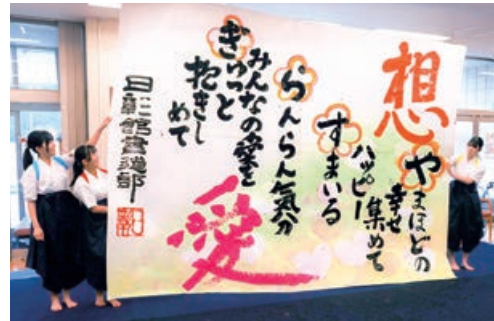 想
やまほどの
幸せ
集めて
ハッピー
すまいる
らんらん気分
みんなの を
ぎゅっと
抱きし
めて
愛
館書道部